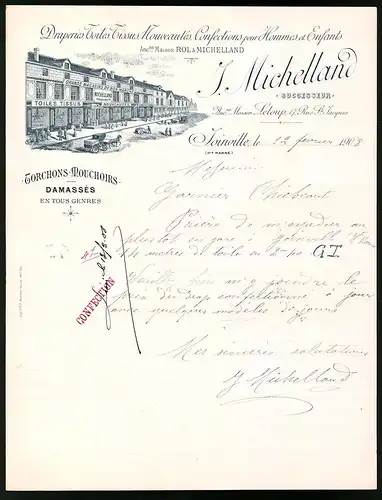 Draperies Toiles Tissus Nouveautés Confections pour Hommes et Enfants
Ancne Maison ROL & MICHELLAND
J. Michelland
SUCCESSEUR
Ancne Maison Leloup, 17, Rue St Jacques
Joinville, le 22 février 1908
(Hte MARNE)
TOILES, TISSUS
MICHELLAND
TORCHONS-MOUCHOIRS
DAMASSÉS
EN TOUS GENRES
Monsieur
Garnier Thiébaut
Prière de m'expédier au
plus tôt en gare Joinville
14 mètres de toile en 2 GT.
Veuillez y joindre le
prix du drap confectionné à jour
avec quelques modèles de jours
CONFECTION
Mes sincères salutations
J. Michelland